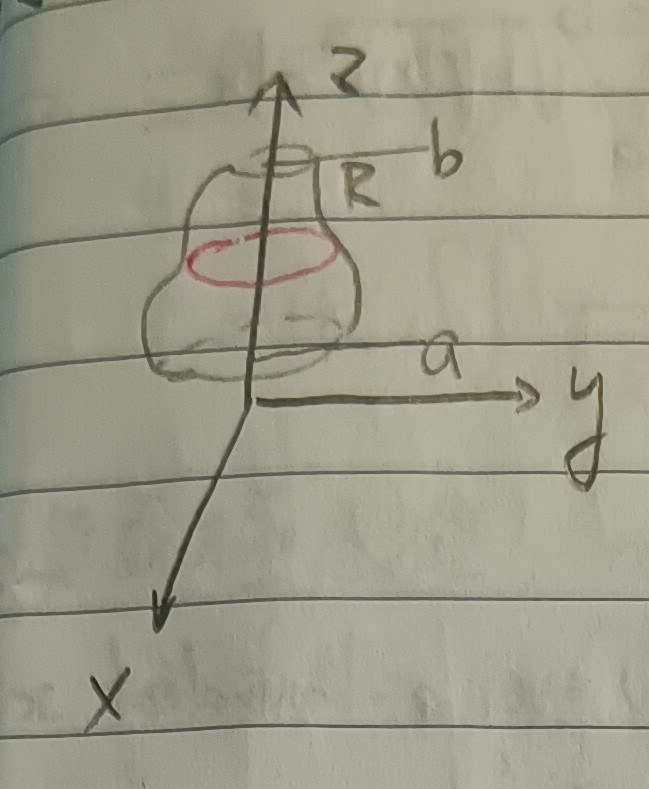 z
b
R
a
y
x